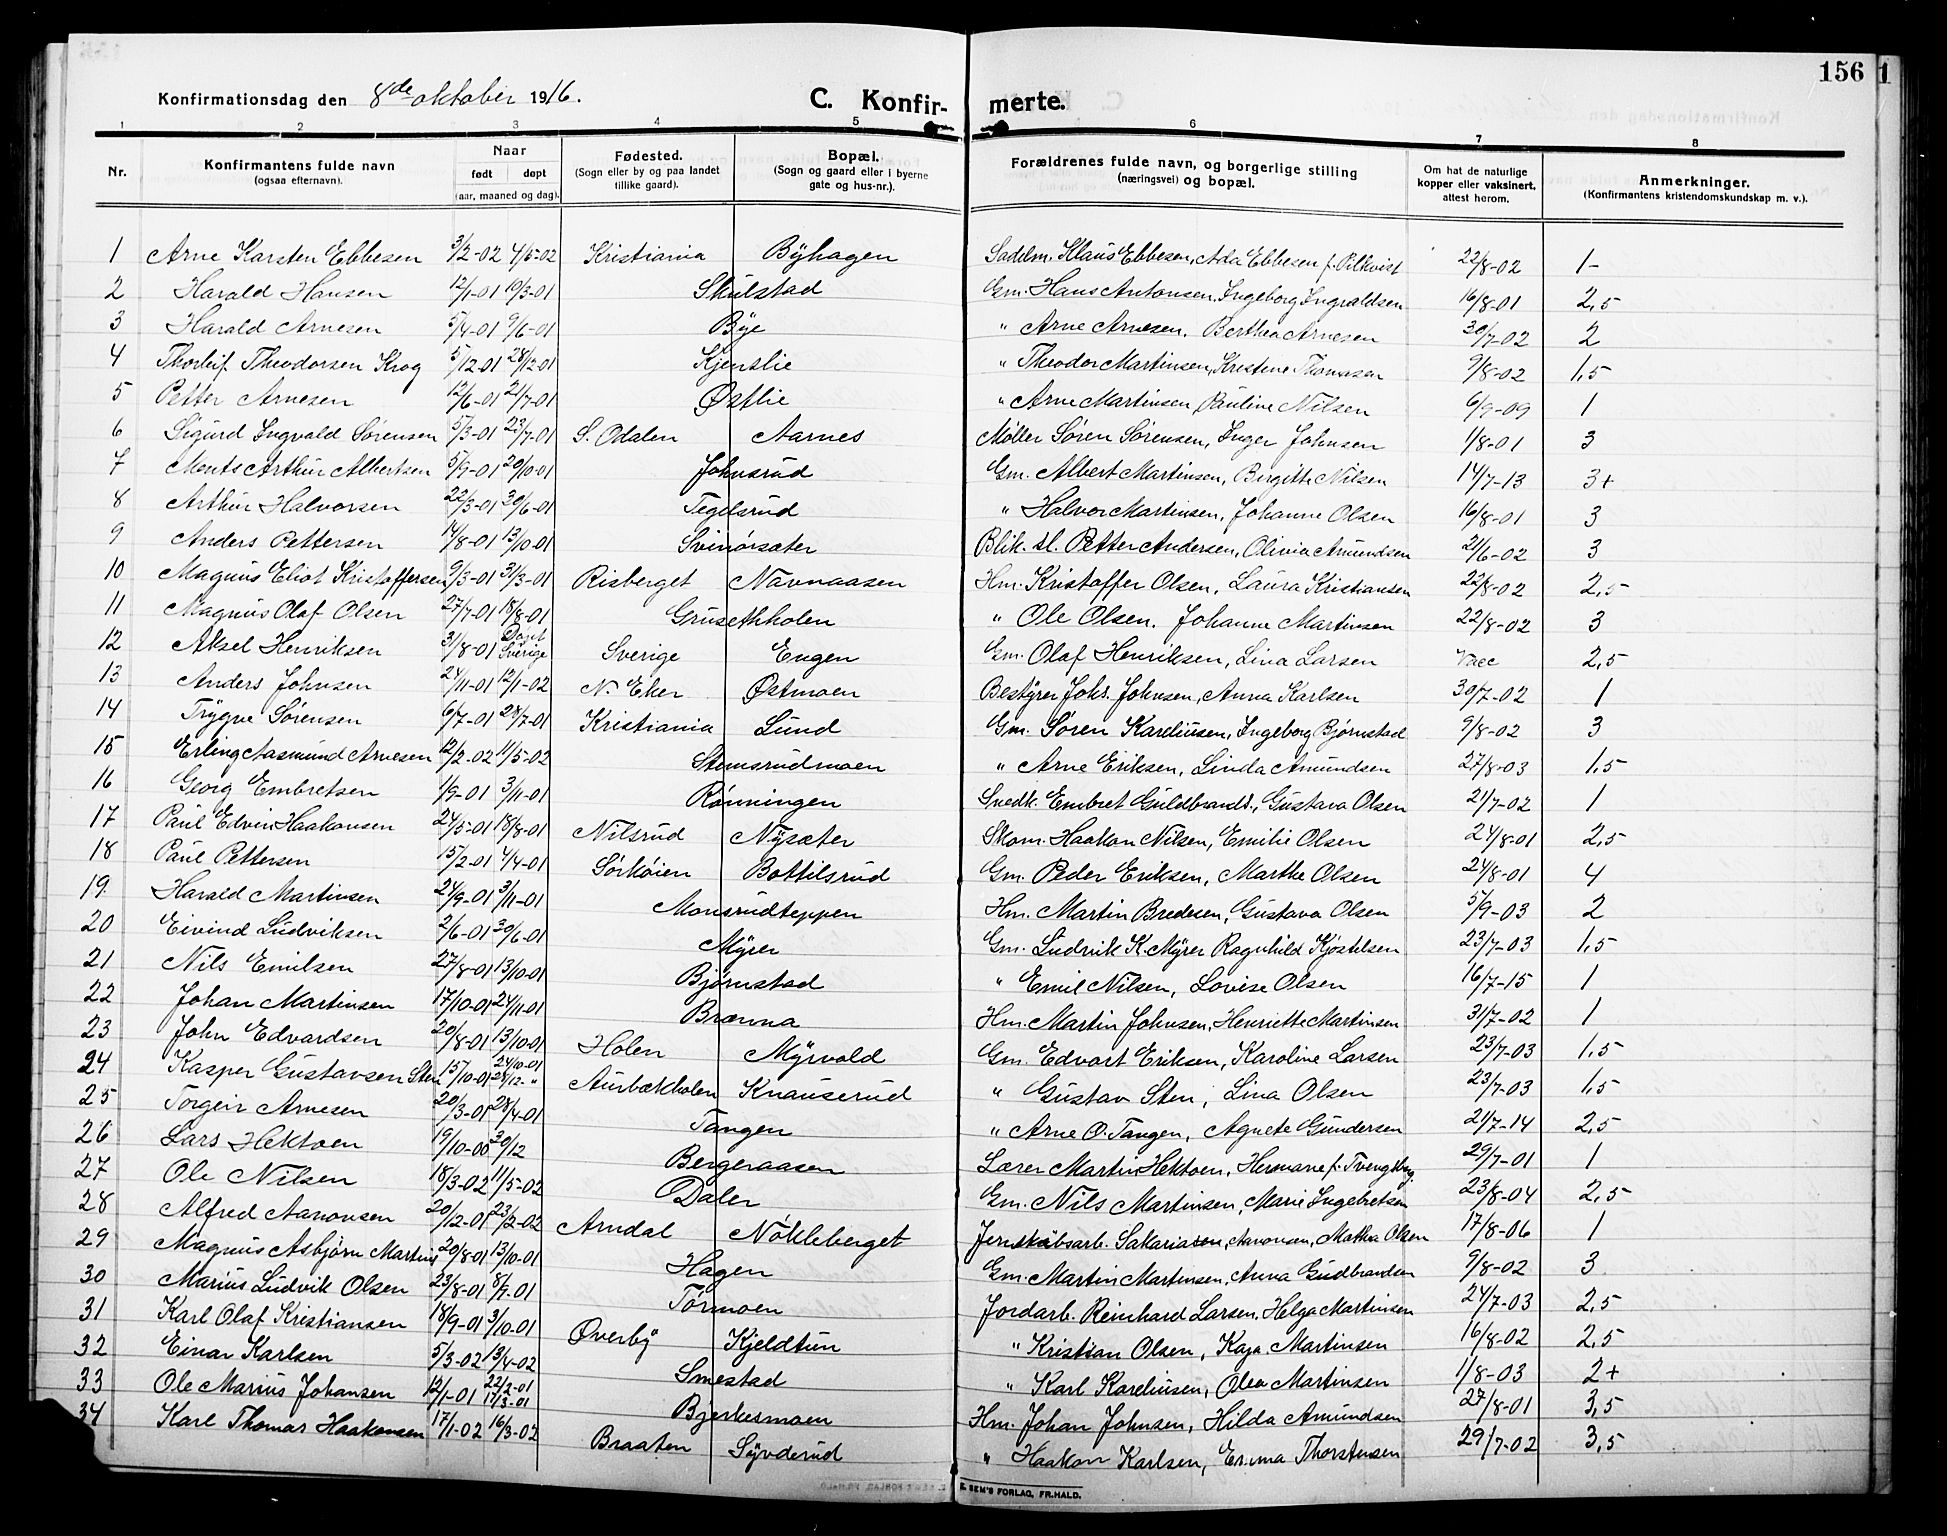 156
1
Konfirmationsdag den 8de oktober 1916.
C. Konfir- merte.
1 2 3 4 5 6 7 8
Nr.
Konfirmantens fulde navn (ogsaa efternavn).
Naar født døpt (aar, maaned og dag).
Fødested. (Sogn eller by og paa landet tillike gaard).
Bopæl. (Sogn og gaard eller i byerne gate og hus-nr.).
Forældrenes fulde navn, og borgerlige stilling (næringsvei) og bopæl.
Om hat de naturlige kopper eller vaksinert, attest herom.
Anmerkninger. (Konfirmantens kristendomskundskap m. v.).
1 Arne Karsten Ebbesen 3/2-02 4/5-02 Kristiania Byhagen Sadelm. Klaus Ebbesen, Ada Ebbesen f. Pilkvist 22/8-02 1-
2 Harald Hansen 12/1-01 10/3-01 Skulstad Gm. Hans Antonsen, Ingeborg Ingvaldsen 16/8-01 2,5
3 Harald Arnesen 5/4-01 9/6-01 Bye " Arne Arnesen, Berthea Arnesen 30/7-02 2
4 Thorleif Theodorsen Krog 5/12-01 28/12-01 Kjenslie " Theodor Martinsen, Kristine Thomasen 9/8-02 1,5
5 Petter Arnesen 12/6-01 21/7-01 Østlie " Arne Martinsen, Pauline Nilsen 6/9-09 1
6 Sigurd Ingvald Sørensen 5/3-01 23/7-01 S. Odalen Aarnes Møller Søren Sørensen, Inger Johnsen 1/8-01 3
7 Ments Arthur Albertsen 5/9-01 20/10-01 Johnsrud Gm. Albert Martinsen, Birgitte Nilsen 14/7-13 3+
8 Arthur Halvorsen 22/3-01 30/6-01 Tegelsrud " Halvor Martinsen, Johanne Olsen 16/8-01 3
9 Anders Pettersen 14/8-01 13/10-01 Svinørsæter Blik. sl. Petter Andersen, Olivia Amundsen 21/6-02 3
10 Magnus Eliot Kristoffersen 9/3-01 31/3-01 Risberget Navnaasen Hm. Kristoffer Olsen, Laura Kristiansen 22/8-02 2,5
11 Magnus Olaf Olsen 27/7-01 18/8-01 Grusethholen " Ole Olsen, Johanne Martinsen 22/8-02 3
12 Aksel Henriksen 31/8-01 Døpt Sverige Sverige Engen Gm. Olaf Henriksen, Lina Larsen Vacc 2,5
13 Anders Johnsen 24/11-01 12/1-02 N. Eker Østmoen Bestyrer Johs. Johnsen, Anna Karlsen 30/7-02 1
14 Trygve Sørensen 6/7-01 28/7-01 Kristiania Lund Gm. Søren Kareliusen, Ingeborg Bjørnstad 9/8-02 3
15 Erling Aasmund Arnesen 12/2-02 11/5-02 Stemsrudmoen " Arne Eriksen, Linda Amundsen 27/8-03 1,5
16 Georg Embretsen 1/9-01 3/11-01 Rønningen Snedk. Embret Guldbrands., Gustava Olsen 21/7-02 1
17 Paul Edvin Haakonsen 24/5-01 18/8-01 Nilsrud Nysæter Skom. Haakon Nilsen, Emilie Olsen 24/8-01 2,5
18 Paul Pettersen 15/2-01 4/4-01 Sørkøien Bottilsrud Gm. Peder Eriksen, Marthe Olsen 24/8-01 4
19 Harald Martinsen 24/9-01 3/11-01 Monsrudteppen Hm. Martin Bredesen, Gustava Olsen 5/9-03 2
20 Eivind Ludviksen 2/6-01 30/6-01 Myrer Gm. Ludvik K. Myrer Ragnhild Kjostilsen 23/7-03 1,5
21 Nils Emilsen 27/8-01 13/10-01 Bjørnstad " Emil Nilsen, Lovise Olsen 16/7-15 1
22 Johan Martinsen 17/10-01 24/11-01 Brævna Hm. Martin Johnsen, Henriette Martinsen 31/7-02 1
23 John Edvardsen 20/8-01 13/10-01 Holen Myrvold Gm. Edvart Eriksen, Karoline Larsen 23/7-03 1,5
24 Kasper Gustavsen Sten 15/10-01 24/10-01 28/12-" Aurbækholen Knauserud " Gustav Sten, Lina Olsen 23/7-03 1,5
25 Torgeir Arnesen 20/3-01 28/4-01 Tangen " Arne O. Tangen, Agnete Gundersen 21/7-14 2,5
26 Lars Hektoen 19/10-00 30/12 Bergeraasen Lærer Martin Hektoen, Hermane f. Tvengsberg 29/7-01 1
27 Ole Nilsen 18/3-02 11/5-02 Daler Gm. Nils Martinsen, Marie Ingebretsen 23/8-04 2,5
28 Alfred Aanonsen 20/12-01 23/2-02 Arndal Nøkleberget Jernskibsarb. Sakariasen, Aanonsen, Mathea Olsen 17/8-06 1
29 Magnus Asbjørn Martins 20/8-01 13/10-01 Hagen Gm. Martin Martinsen, Anna Gudbrandsen 9/8-02 3
30 Marius Ludvik Olsen 23/8-01 8/7-01 Tørmoen Jordarb. Reinhard Larsen, Helga Martinsen 24/7-03 2,5
31 Karl Olaf Kristiansen 18/9-01 3/10-01 Øverby Kjeldtun " Kristian Olsen, Kaja Martinsen 16/8-02 2,5
32 Einar Karlsen 5/3-02 13/4-02 Smestad " Karl Kareliusen, Olea Martinsen 1/8-03 2+
33 Ole Marius Johansen 12/1-01 22/2-01 17/3-01 Bjerkesmoen Hm. Johan Johnsen, Hilda Amundsen 27/8-01 3,5
34 Karl Thomas Haakonsen 17/1-02 16/3-02 Braaten Syvderud " Haakon Karlsen, Emma Thorstensen 29/7-02 3,5
E. SEM'S FORLAG, FR.HALD.